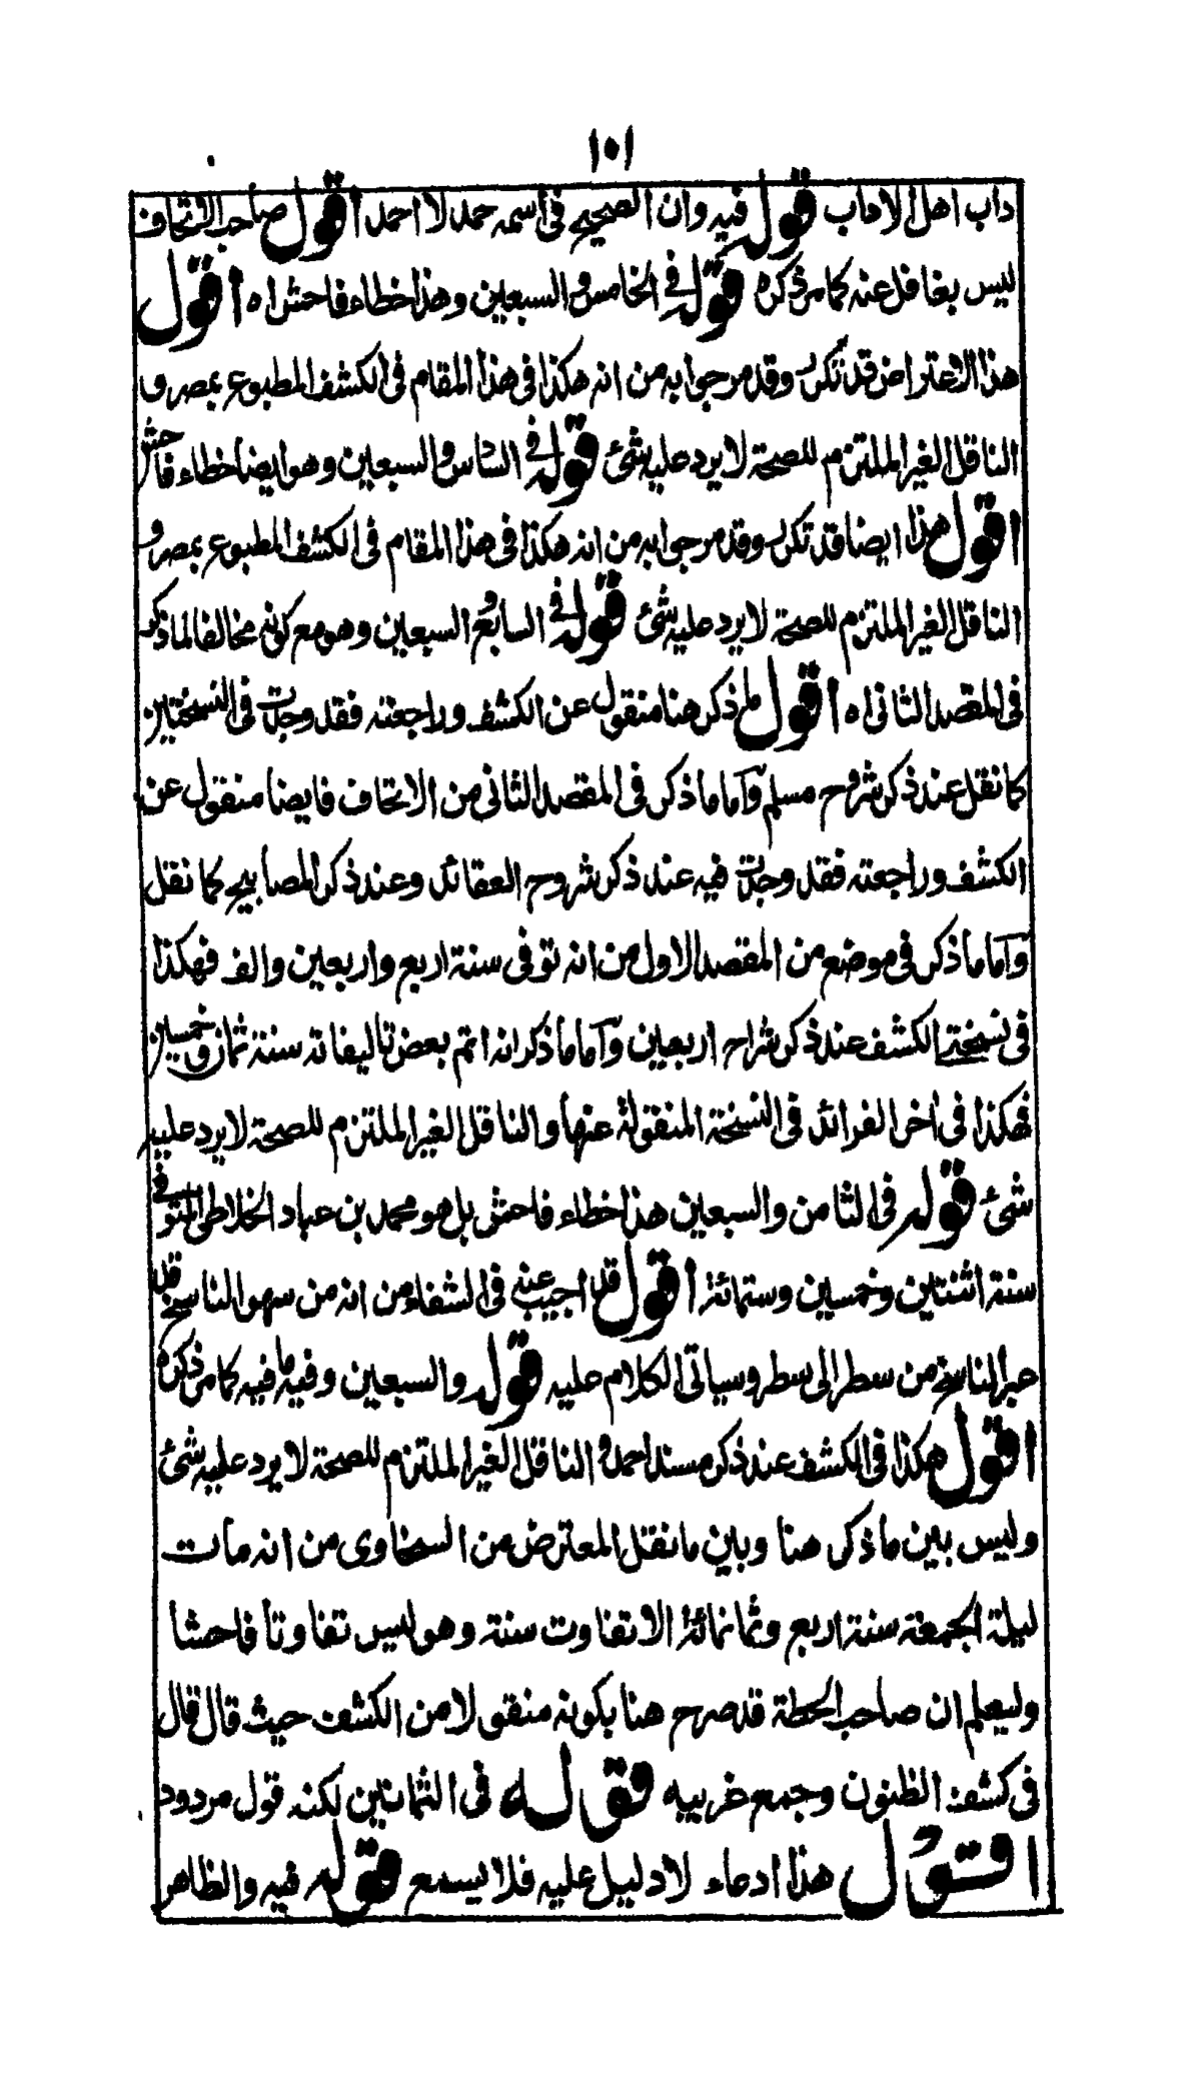 ١٥١
داب اهل الاداب قوله فيه وان الصحيح فى اسمه حمد لا احمد اقول صاحب الاتحاف
ليس بغافل عنه كما مر ذكره قوله فى الخامس والسبعين وهذا خطاء فاحش اه اقول
هذا الاعتراض قد تكرر وقد مر جوابه من انه هكذا فى هذا المقام فى الكشف المطبوع بمصر و
الناقل الغير الملتزم للصحة لا يرد عليه شئ قوله فى السادس والسبعين وهو ايضا خطاء فاحش
اقول هذا ايضا قد تكرر وقد مر جوابه من انه هكذا فى هذا المقام فى الكشف المطبوع بمصر و
الناقل الغير الملتزم للصحة لا يرد عليه شئ قوله فى السابع والسبعين وهو مع كونه مخالفا لما ذكر
فى المقصد الثانى اه اقول ما ذكر هنا منقول عن الكشف وراجعته فقد وجدت فى النسختين
كما نقل عند ذكر شروح مسلم وآما ما ذكر فى المقصد الثانى من الاتحاف فايضا منقول عن
الكشف وراجعته فقد وجدت فيه عند ذكر شروح العقائد وعند ذكر المصابيح كما نقل
وآما ما ذكر فى موضع من المقصد الاول من انه توفى سنة اربع واربعين والف فهكذا
فى نسختى الكشف عند ذكر شراح اربعين وآما ما ذكر انه اتم بعض تاليفاته سنة ثمان وخمسين
فهكذا فى اخر الفرائد فى النسخة المنقولة عنها والناقل الغير الملتزم للصحة لا يرد عليه
شئ قوله فى الثامن والسبعين هذا خطاء فاحش بل هو محمد بن عباد الخلاطى المتوفى
سنة اثنتين وخمسين وستمائة اقول قد اجيب عنه فى الشفاء من انه من سهو الناسخ قل
عبر الناسخ من سطر الى سطر وسياتى الكلام عليه قوله والسبعين وفيه ما فيه كما مر ذكره
اقول هكذا فى الكشف عند ذكر مسند احمد و الناقل الغير الملتزم للصحة لا يرد عليه شئ
وليس بين ما ذكر هنا وبين ما نقل المعترض من السخاوى من انه مات
ليلة الجمعة سنة اربع وثمانمائة الا تفاوت سنة وهو ليس تفاوتا فاحشا
وليعلم ان صاحب الحطة قد صرح هنا بكونه منقولا من الكشف حيث قال قال
فى كشف الظنون وجمع غريبه قوله فى الثمانين لكنه قول مردود
اقول هذا ادعاء لا دليل عليه فلا يسمع قوله فيه والظاهر